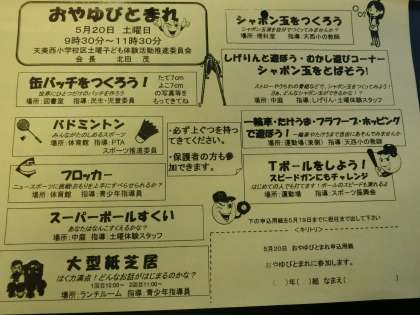 おやゆびとまれ
5月20日 土曜日
9時30分～11時30分
天美西小学校区土曜子ども体験活動推進委員会
会 長 北田 茂
缶バッチをつくろう!
世界にひとつだけのバッチをつくろう
場所:図書室 指導:民生・児童委員
たて7cm
よこ7cm
の写真等を
もってきてね
バドミントン
みんながたのしめるスポーツ
場所:体育館 指導:PTA
スポーツ推進委員
・必ず上ぐつを持っ
てきてください。
・保護者の方も参
加できます。
フロッカー
ニュースポーツに挑戦!おもりを上手にすべらせられるか?
場所:体育館 指導:青少年指導員
スーパーボールすくい
あなたはなんこすくえるかな?
場所:中庭 指導:土曜体験スタッフ
大型紙芝居
はく力満点!どんなお話がはじまるのかな?
1回目10:00～ 2回目11:00～
場所:ランチルーム 指導:青少年指導員
シャボン玉をつくろう
シャボン玉液を自分でつくってみませんか?
場所:理科室 指導:天西小の教諭
しげりんと遊ぼう・のむしい遊びコーナー
シャボン玉をとばそう!
ストローやうちわの骨組などで、シャボン玉をつくってみよう!
場所:中庭 指導:しげりん・土曜体験スタッフ
一輪車・たけうま・フラフープ・ホッピング
で遊ぼう!
場所:運動場(東側) 指導:天西小の教諭
Tボールをしよう!
スピードガンにもチャレンジ
はじめての人でも打てます!ボールのスピードも測れるよ
場所:運動場 指導:スポーツ振興会
下の申込用紙を5月19日までに担任まで出して下さい
<キリトリ>
5月20日 おやゆびとまれ申込用紙
おやゆびとまれに参加します。
( )年( )組 なまえ( )